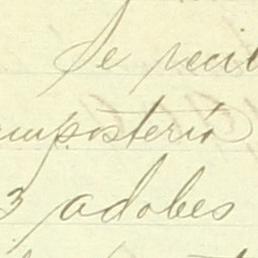 Se recib
mposteria
3 adobes